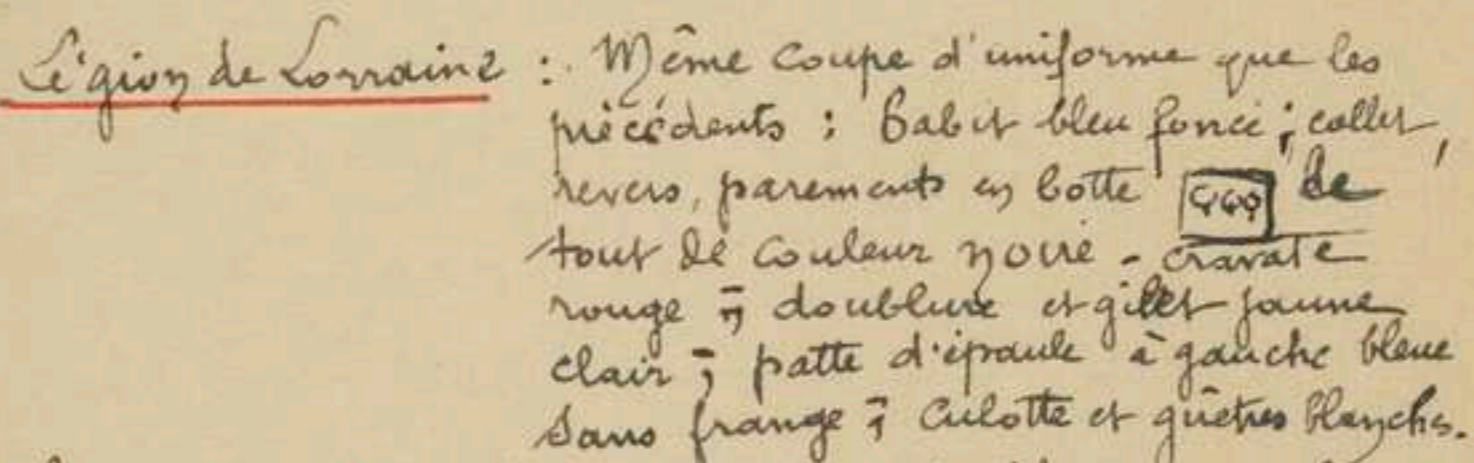 Légion de Lorraine : Même coupe d'uniforme que les
précédents : habit bleu foncé ; collet,
revers, parements en botte de
tout de couleur noire - cravate
rouge ; doublure et gilet jaune
clair ; patte d'épaule à gauche bleue
sans frange ; culotte et guêtres blanches.